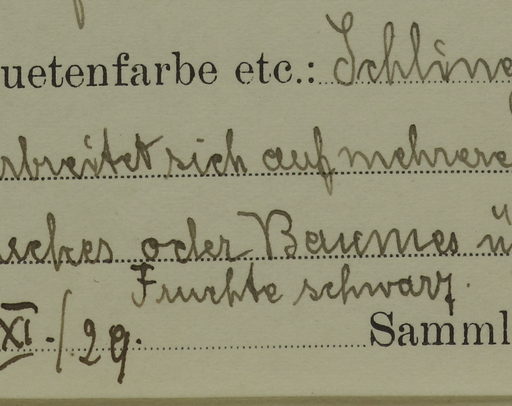 uetenfarbe etc.: Schling
rbreitet sich auf mehrere
sches oder Baumes ü
Fruchte schwarz.
XI./29. Samml